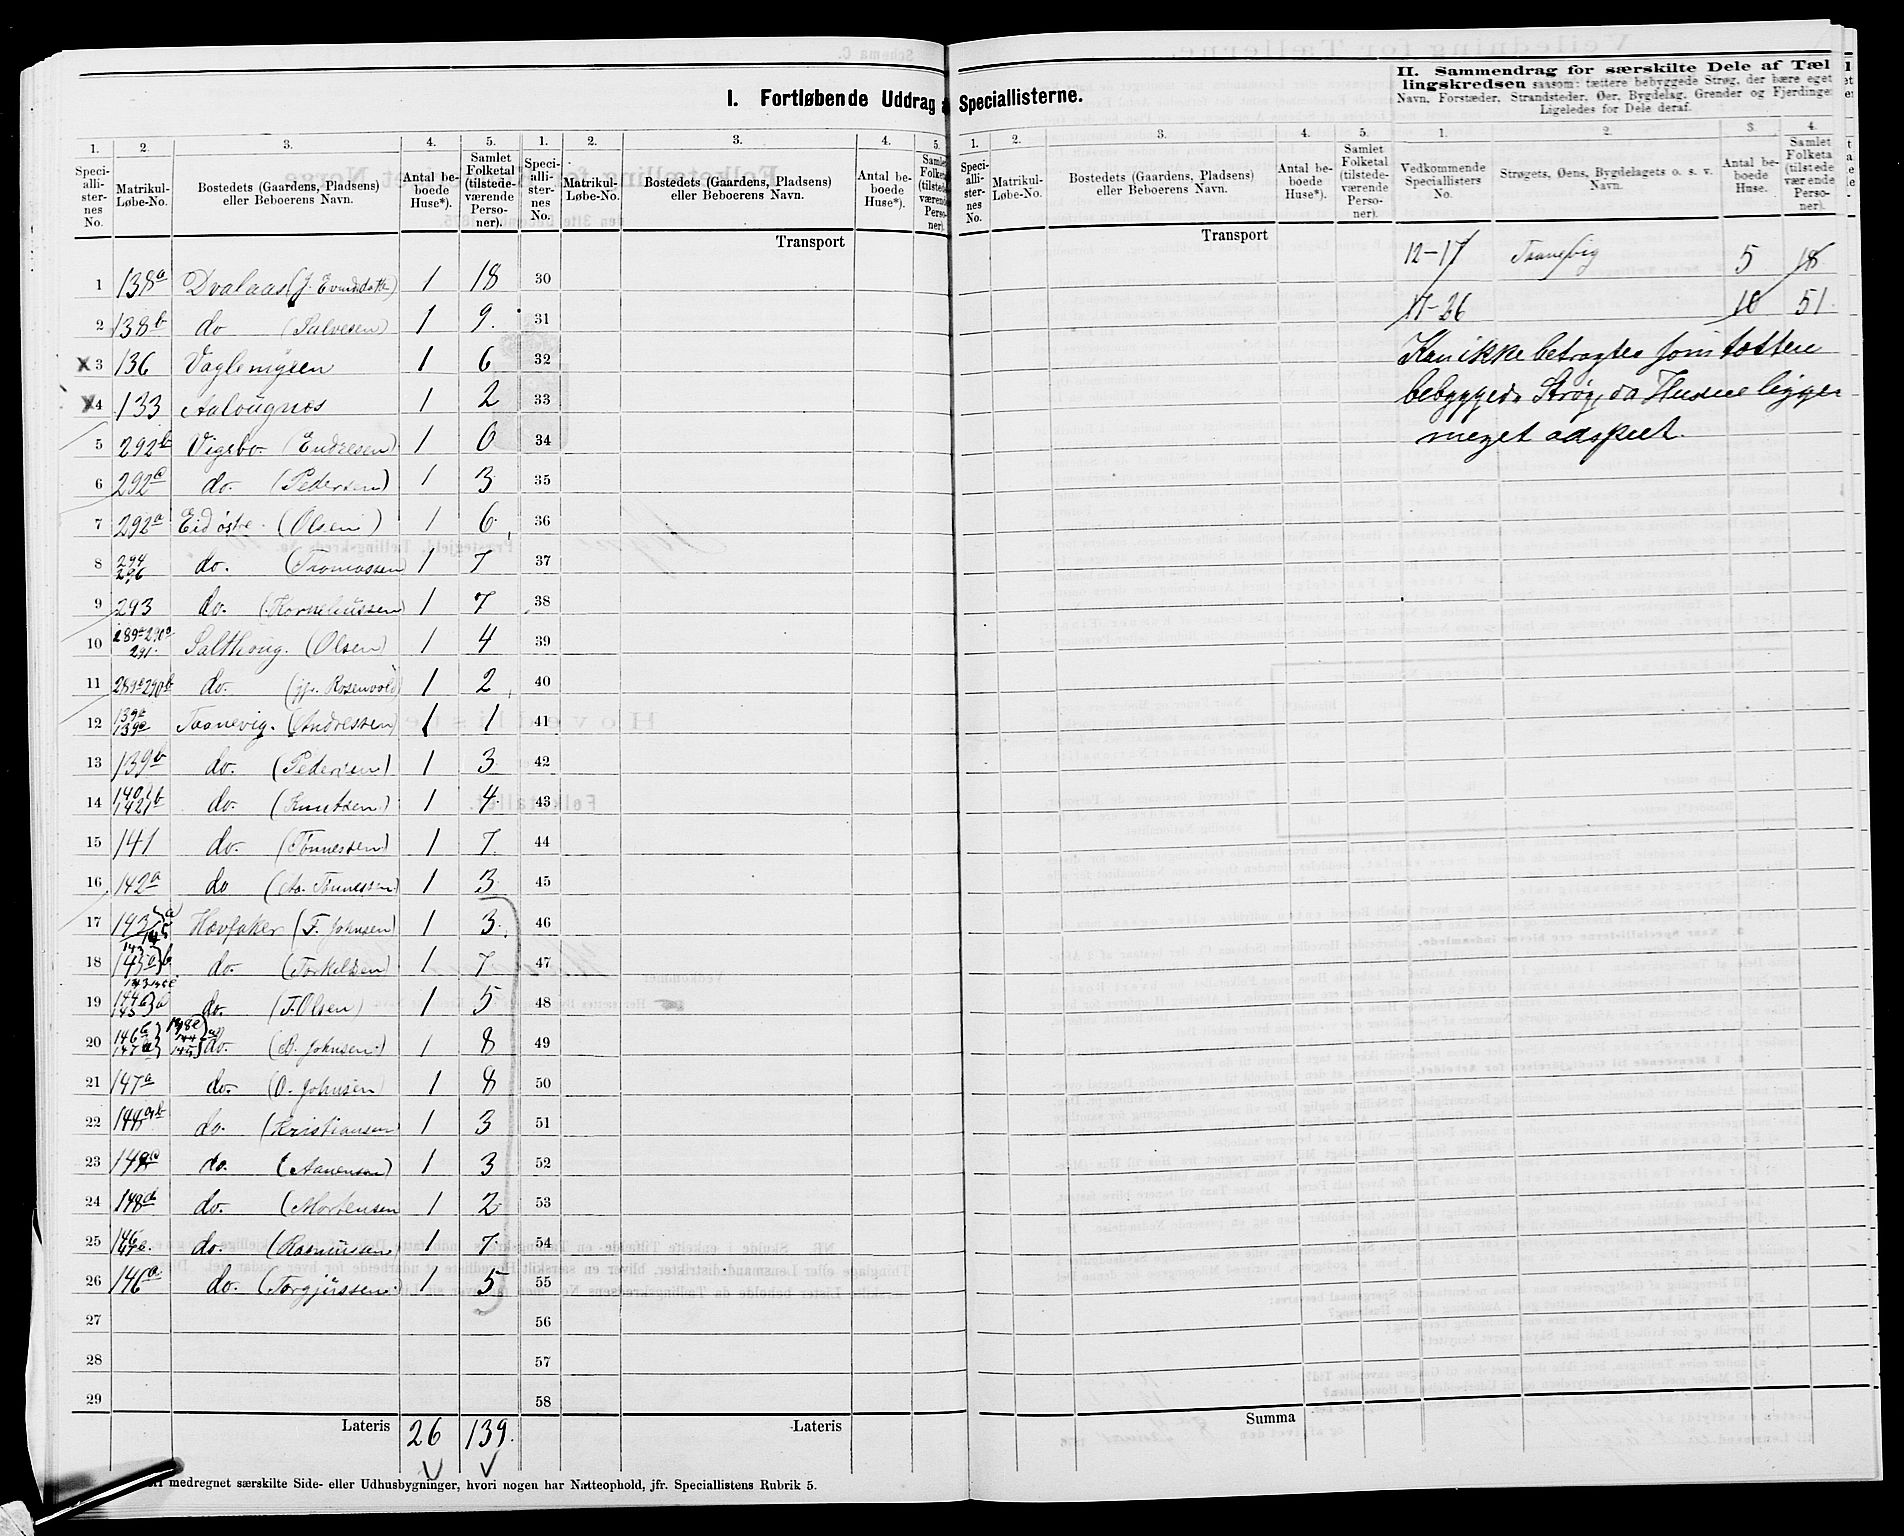 I. Fortløbende Uddrag a Speciallisterne.
II. Sammendrag for særskilte Dele af Tæl
lingskredsen saasom: tættere bebyggede Strøg, der bære eget
Navn, Forstæder, Strandsteder, Øer, Bygdelag, Grender og Fjerdinge
Ligeledes for Dele deraf.
1. 2. 3. 4. 5. 1. 2. 3. 4. 5. 1. 2. 3. 4. 5. 1. 2. 3. 4.
Speciallisternes No. Matrikul-Løbe-No. Bostedets (Gaardens, Pladsens) eller Beboerens Navn. Antal beboede Huse*). Samlet Folketal (tilstedeværende Personer).
Speciallisternes No. Matrikul-Løbe-No. Bostedets (Gaardens, Pladsens) eller Beboerens Navn. Antal beboede Huse*). Samlet
Speciallisternes No. Matrikul-Løbe-No. Bostedets (Gaardens, Pladsens) eller Beboerens Navn. Antal beboede Huse*). Samlet Folketal (tilstedeværende Personer).
Vedkommende Speciallisters No. Strøgets, Øens, Bygdelagets o. s. v. Navn. Antal beboede Huse. Samlet Folketa (tilstede værende Personer).
Transport
Transport
1 138a Dvalaas 1 18 30
2 138b do (Salvesen) 1 9. 31
x3 136 Vaglemyren 1 6 32
x4 133 1 2 33
5 292b Vigsbo (Endresen) 1 6 34
6 292c do. (Pedersen) 1 3 35
7 292a Eid østre. (Olsen) 1 6 36
8 294 296 do. (Tromassen 1 7 37
9 293 do. (Korneliussen) 1 7 38
10 291 Salthoug. (Olsen) 1 4 39
11 do. (Rosenvold) 1 2 40
12 Taanevig. (Andressen) 1 1 41
13 139b do. (Pedersen) 1 3 42
14 do. (Knutsen) 1 4 43
15 141 do. (Tönnessen) 1 7 44
16 142a do (Aa. Tönnessen) 1 3 45
17 Høvfaker (F. Johnsen) 1 3. 46
18 do. (Torkildsen) 1 7 47
19 do. (T. Olsen) 1 5 48
20 do. (B. Johnsen.) 1 8 49
21 147a do. (O. Johnsen) 1 8 50
22 do. (Kristiansen) 1 3 51
23 do. (Aanensen) 1 3 52
24 148d do. (Mortensen 1 2 53
25 do. (Rasmussen) 1 7 54
26 146a do. (Torgjussen.) 1 5 55
27 56
28 57
29 58
Lateris 26 139. Lateris
Summa
12-17 Taanevig 5 18
17-26 10 51.
Kan ikke betragtes som tætten
bebyggede Strøg, da Husene ligger
meget adspret.
medregnet særskilte Side- eller Udhusbygninger, hvori nogen har Natteophold, jfr. Speciallistens Rubrik 5.